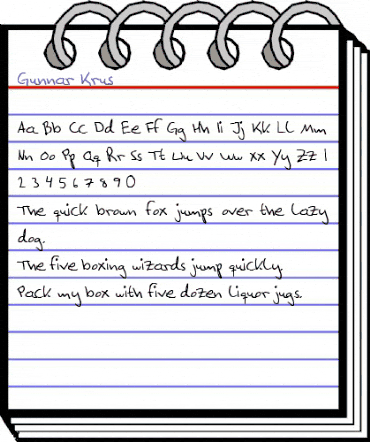 Gunnar Krus
Aa Bb Cc Dd Ee Ff Gg Hh Ii Jj Kk Ll Mm
Nn Oo Pp Qq Rr Ss Tt Uu Vv Ww Xx Yy Zz 1
2 3 4 5 6 7 8 9 0
The quick brown fox jumps over the lazy
dog.
The five boxing wizards jump quickly
Pack my box with five dozen liquor jugs.